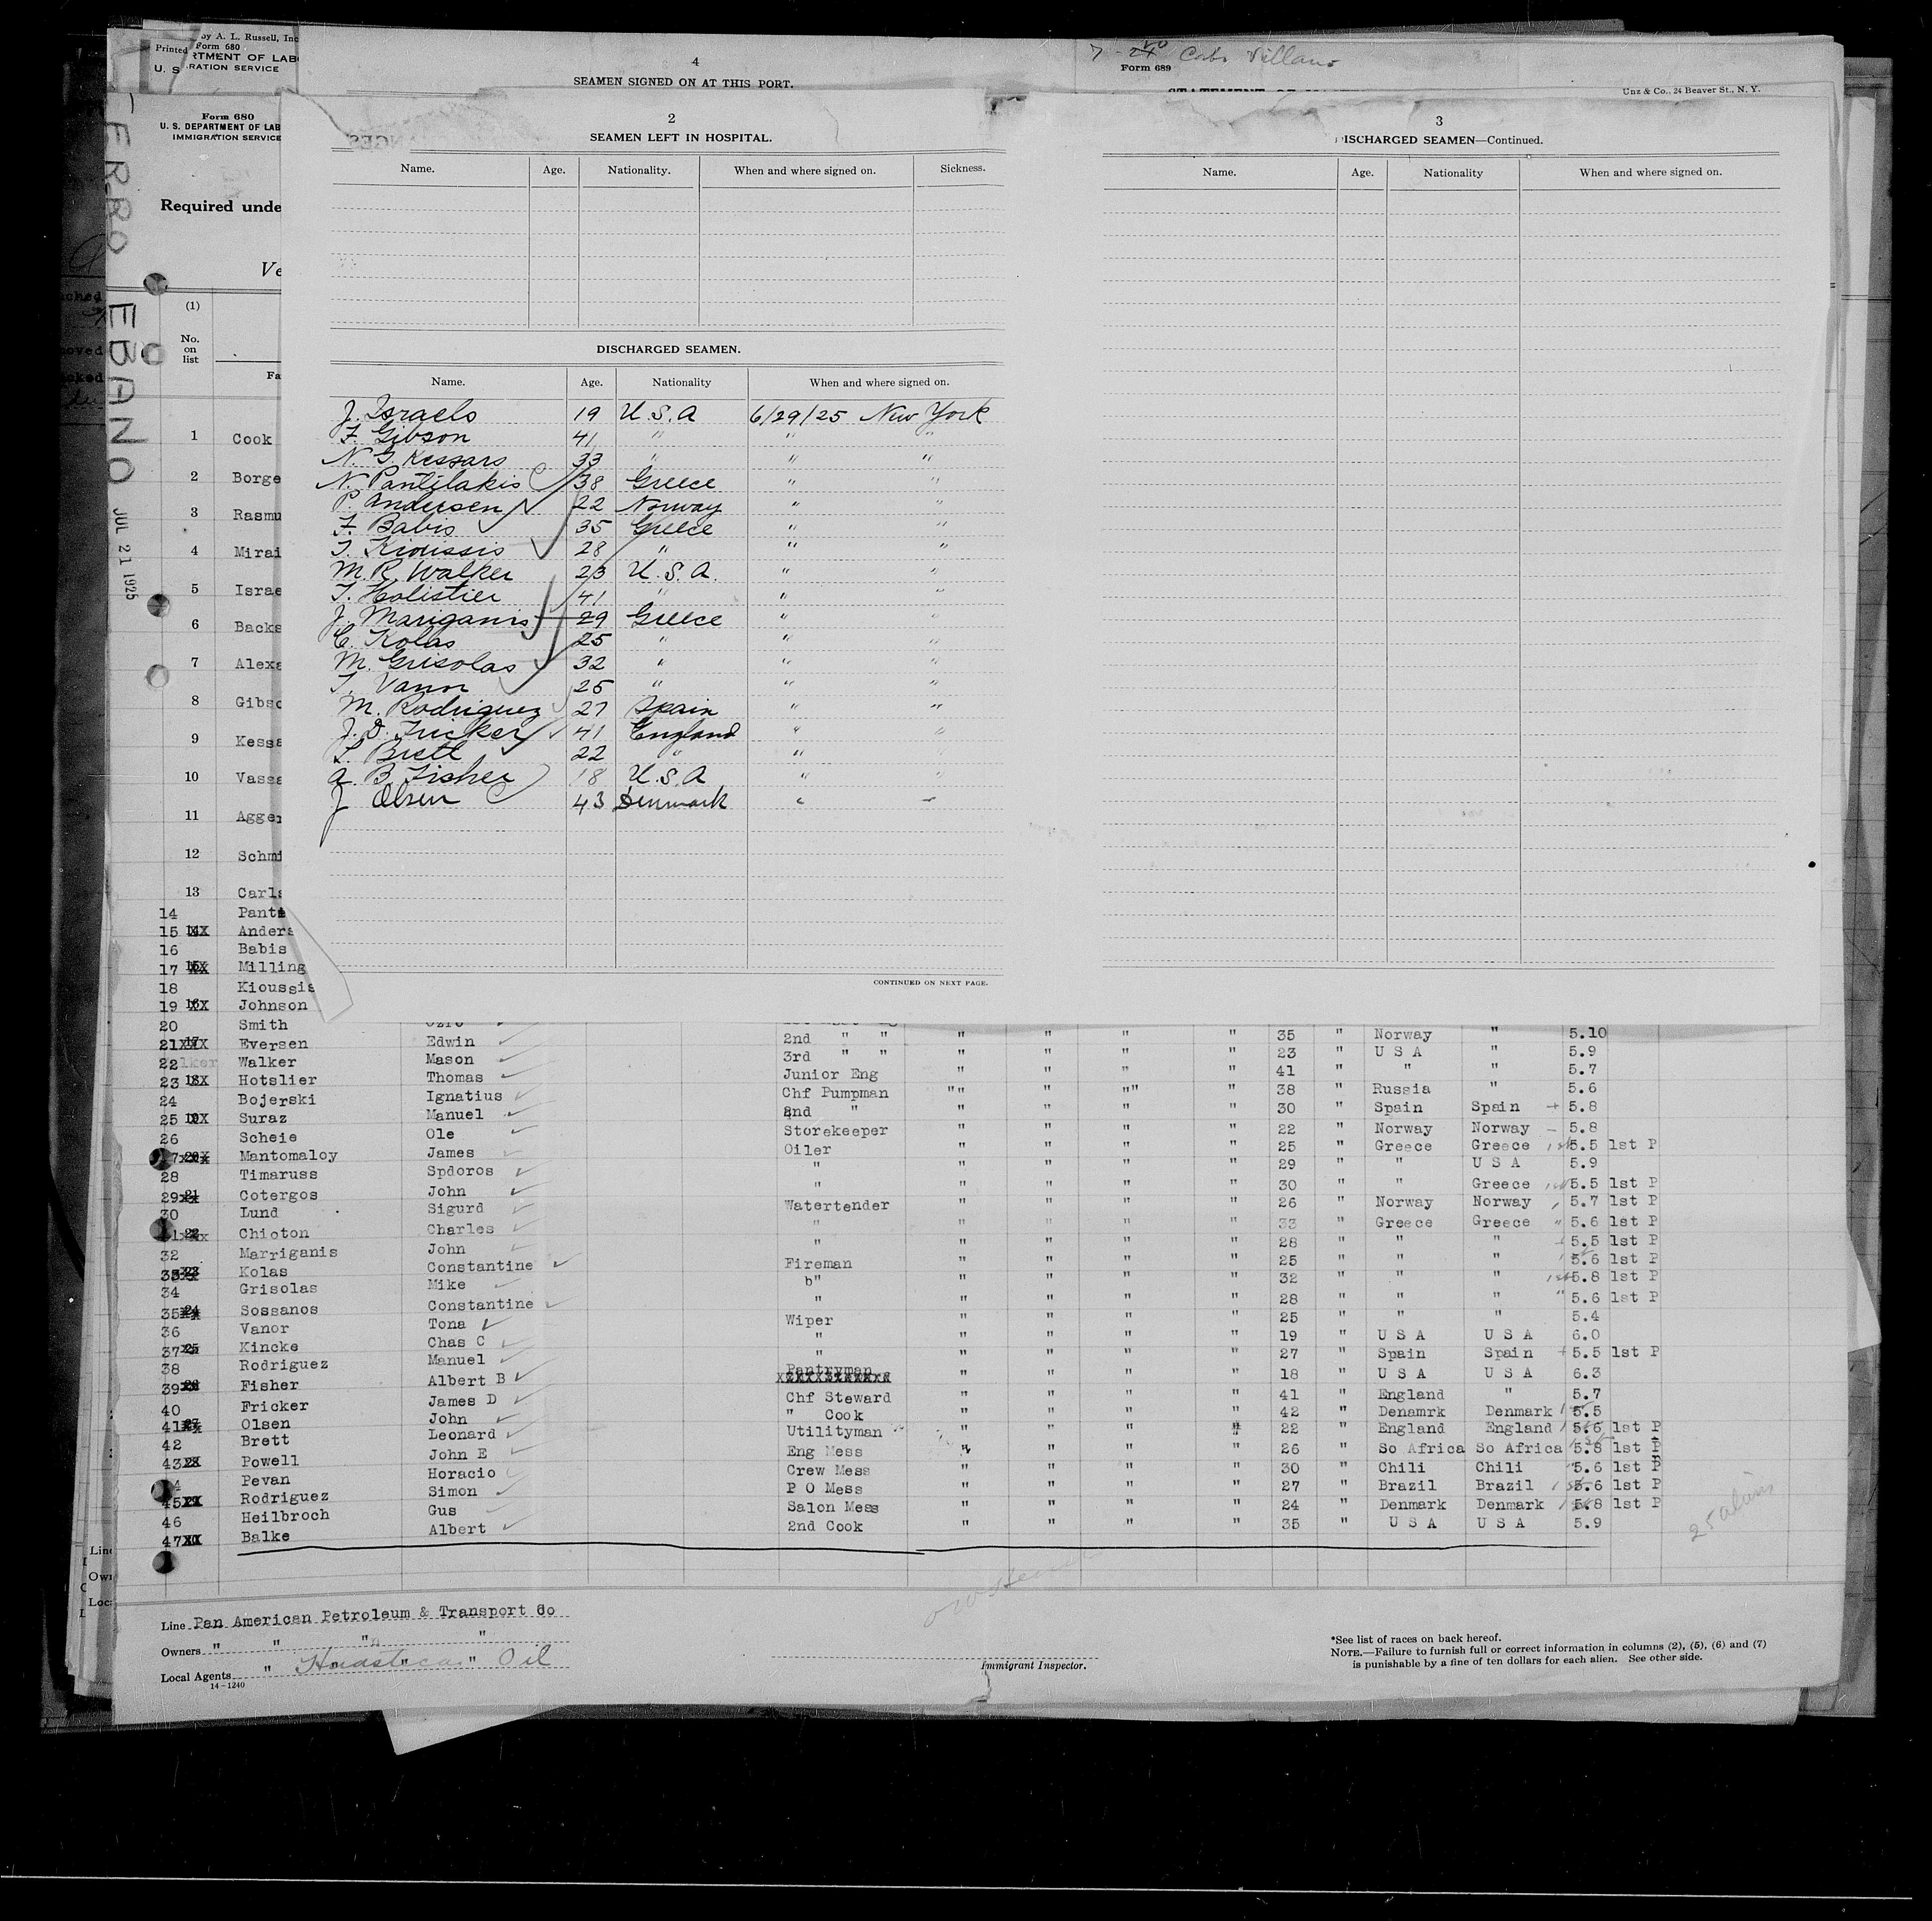 by A. L. Russell, Inc
Printed Form 680
RTMENT OF LABO
U. S RATION SERVICE
4
SEAMEN SIGNED ON AT THIS PORT.
Cabo Villano
Form 689
Unz & Co., 24 Beaver St., N. Y.
Form 680
U. S. DEPARTMENT OF LAB
IMMIGRATION SERVICE
Required unde
Ve
FERRO EBANO JUL 21 1925
(1)
No. on list
Fa
2
SEAMEN LEFT IN HOSPITAL.
Name. Age. Nationality. When and where signed on. Sickness.
DISCHARGED SEAMEN.
Name. Age. Nationality When and where signed on.
J. Israels 19 U.S.A 6/29/25 New York
F. Gibson 41 " " "
N. G. Kessars 33 " " "
N. Pantelakis 38 Greece " "
P. Andersen 22 Norway " "
F. Babis 35 Greece " "
T. Kioussis 28 " " "
M. R. Walker 23 U.S.A. " "
T. Holistier 41 " " "
J. Mariganis 29 Greece " "
C. Kolas 25 " " "
M. Grisolas 32 " " "
T. Vanor 25 " " "
M. Rodriguez 27 Spain " "
J. D. Fricker 41 England " "
L. Brett 22 " " "
A. B. Fisher 18 U.S.A " "
J Olsen 43 Denmark " "
CONTINUED ON NEXT PAGE.
3
DISCHARGED SEAMEN—Continued.
Name. Age. Nationality When and where signed on.
1 Cook
2 Borge
3 Rasmu
4 Mirai
5 Israe
6 Backs
7 Alexa
8 Gibso
9 Kessa
10 Vassa
11 Agger
12 Schmi
13 Carls
14 Pante
15 Anders
16 Babis
17 Milling
18 Kioussis
19 Johnson
20 Smith
21 Eversen Edwin 2nd " " " " " " 35 " Norway " 5.10
22 Walker Mason 3rd " " " " " " 23 " U S A " 5.9
23 Hotslier Thomas Junior Eng " " " " 41 " " " 5.7
24 Bojerski Ignatius Chf Pumpman "" " "" " 38 " Russia " 5.6
25 Suraz Manuel 2nd " " " " " 30 " Spain Spain 5.8
26 Scheie Ole Storekeeper " " " " 22 " Norway Norway 5.8
27 Mantomaloy James Oiler " " " " 25 " Greece Greece 5.5 1st P
28 Timaruss Spdoros " " " " " 29 " " U S A 5.9
29 Cotergos John " " " " " 30 " " Greece 5.5 1st P
30 Lund Sigurd Watertender " " " " 26 " Norway Norway 5.7 1st P
31 Chioton Charles " " " " " 33 " Greece Greece 5.6 1st P
32 Marriganis John " " " " " 28 " " " 5.5 1st P
33 Kolas Constantine Fireman " " " " 25 " " " 5.6 1st P
34 Grisolas Mike b" " " " " 32 " " " 5.8 1st P
35 Sossanos Constantine " " " " " 28 " " " 5.6 1st P
36 Vanor Tona Wiper " " " " 25 " " " 5.4
37 Kincke Chas C " " " " " 19 " U S A U S A 6.0
38 Rodriguez Manuel " " " " " 27 " Spain Spain 5.5 1st P
39 Fisher Albert B Pantryman " " " " 18 " U S A U S A 6.3
40 Fricker James D Chf Steward " " " " 41 " England " 5.7
41 Olsen John " Cook " " " " 42 " Denamrk Denmark 5.5
42 Brett Leonard Utilityman " " " " 22 " England England 5.6 1st P
43 Powell John E Eng Mess " " " " 26 " So Africa So Africa 5.8 1st P
44 Pevan Horacio Crew Mess " " " " 30 " Chili Chili 5.6 1st P
45 Rodriguez Simon P O Mess " " " " 27 " Brazil Brazil 5.6 1st P
46 Heilbroch Gus Salon Mess " " " " 24 " Denmark Denmark 5.8 1st P
47 Balke Albert 2nd Cook " " " " 35 " U S A U S A 5.9
25 aliens
Line Pan American Petroleum & Transport Co
Owners " " " "
Local Agents " Huasteca Oil
14-1240
Immigrant Inspector.
*See list of races on back hereof.
NOTE.—Failure to furnish full or correct information in columns (2), (5), (6) and (7)
is punishable by a fine of ten dollars for each alien. See other side.